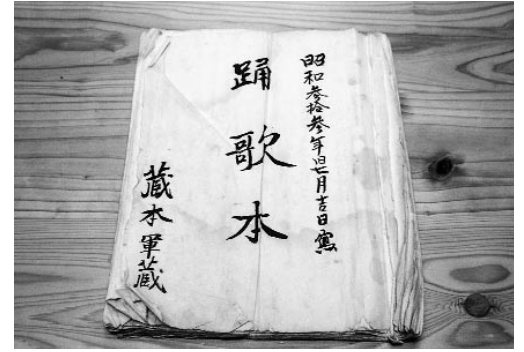 昭和参拾参年旧七月吉日寫
踊歌本
蔵本軍蔵